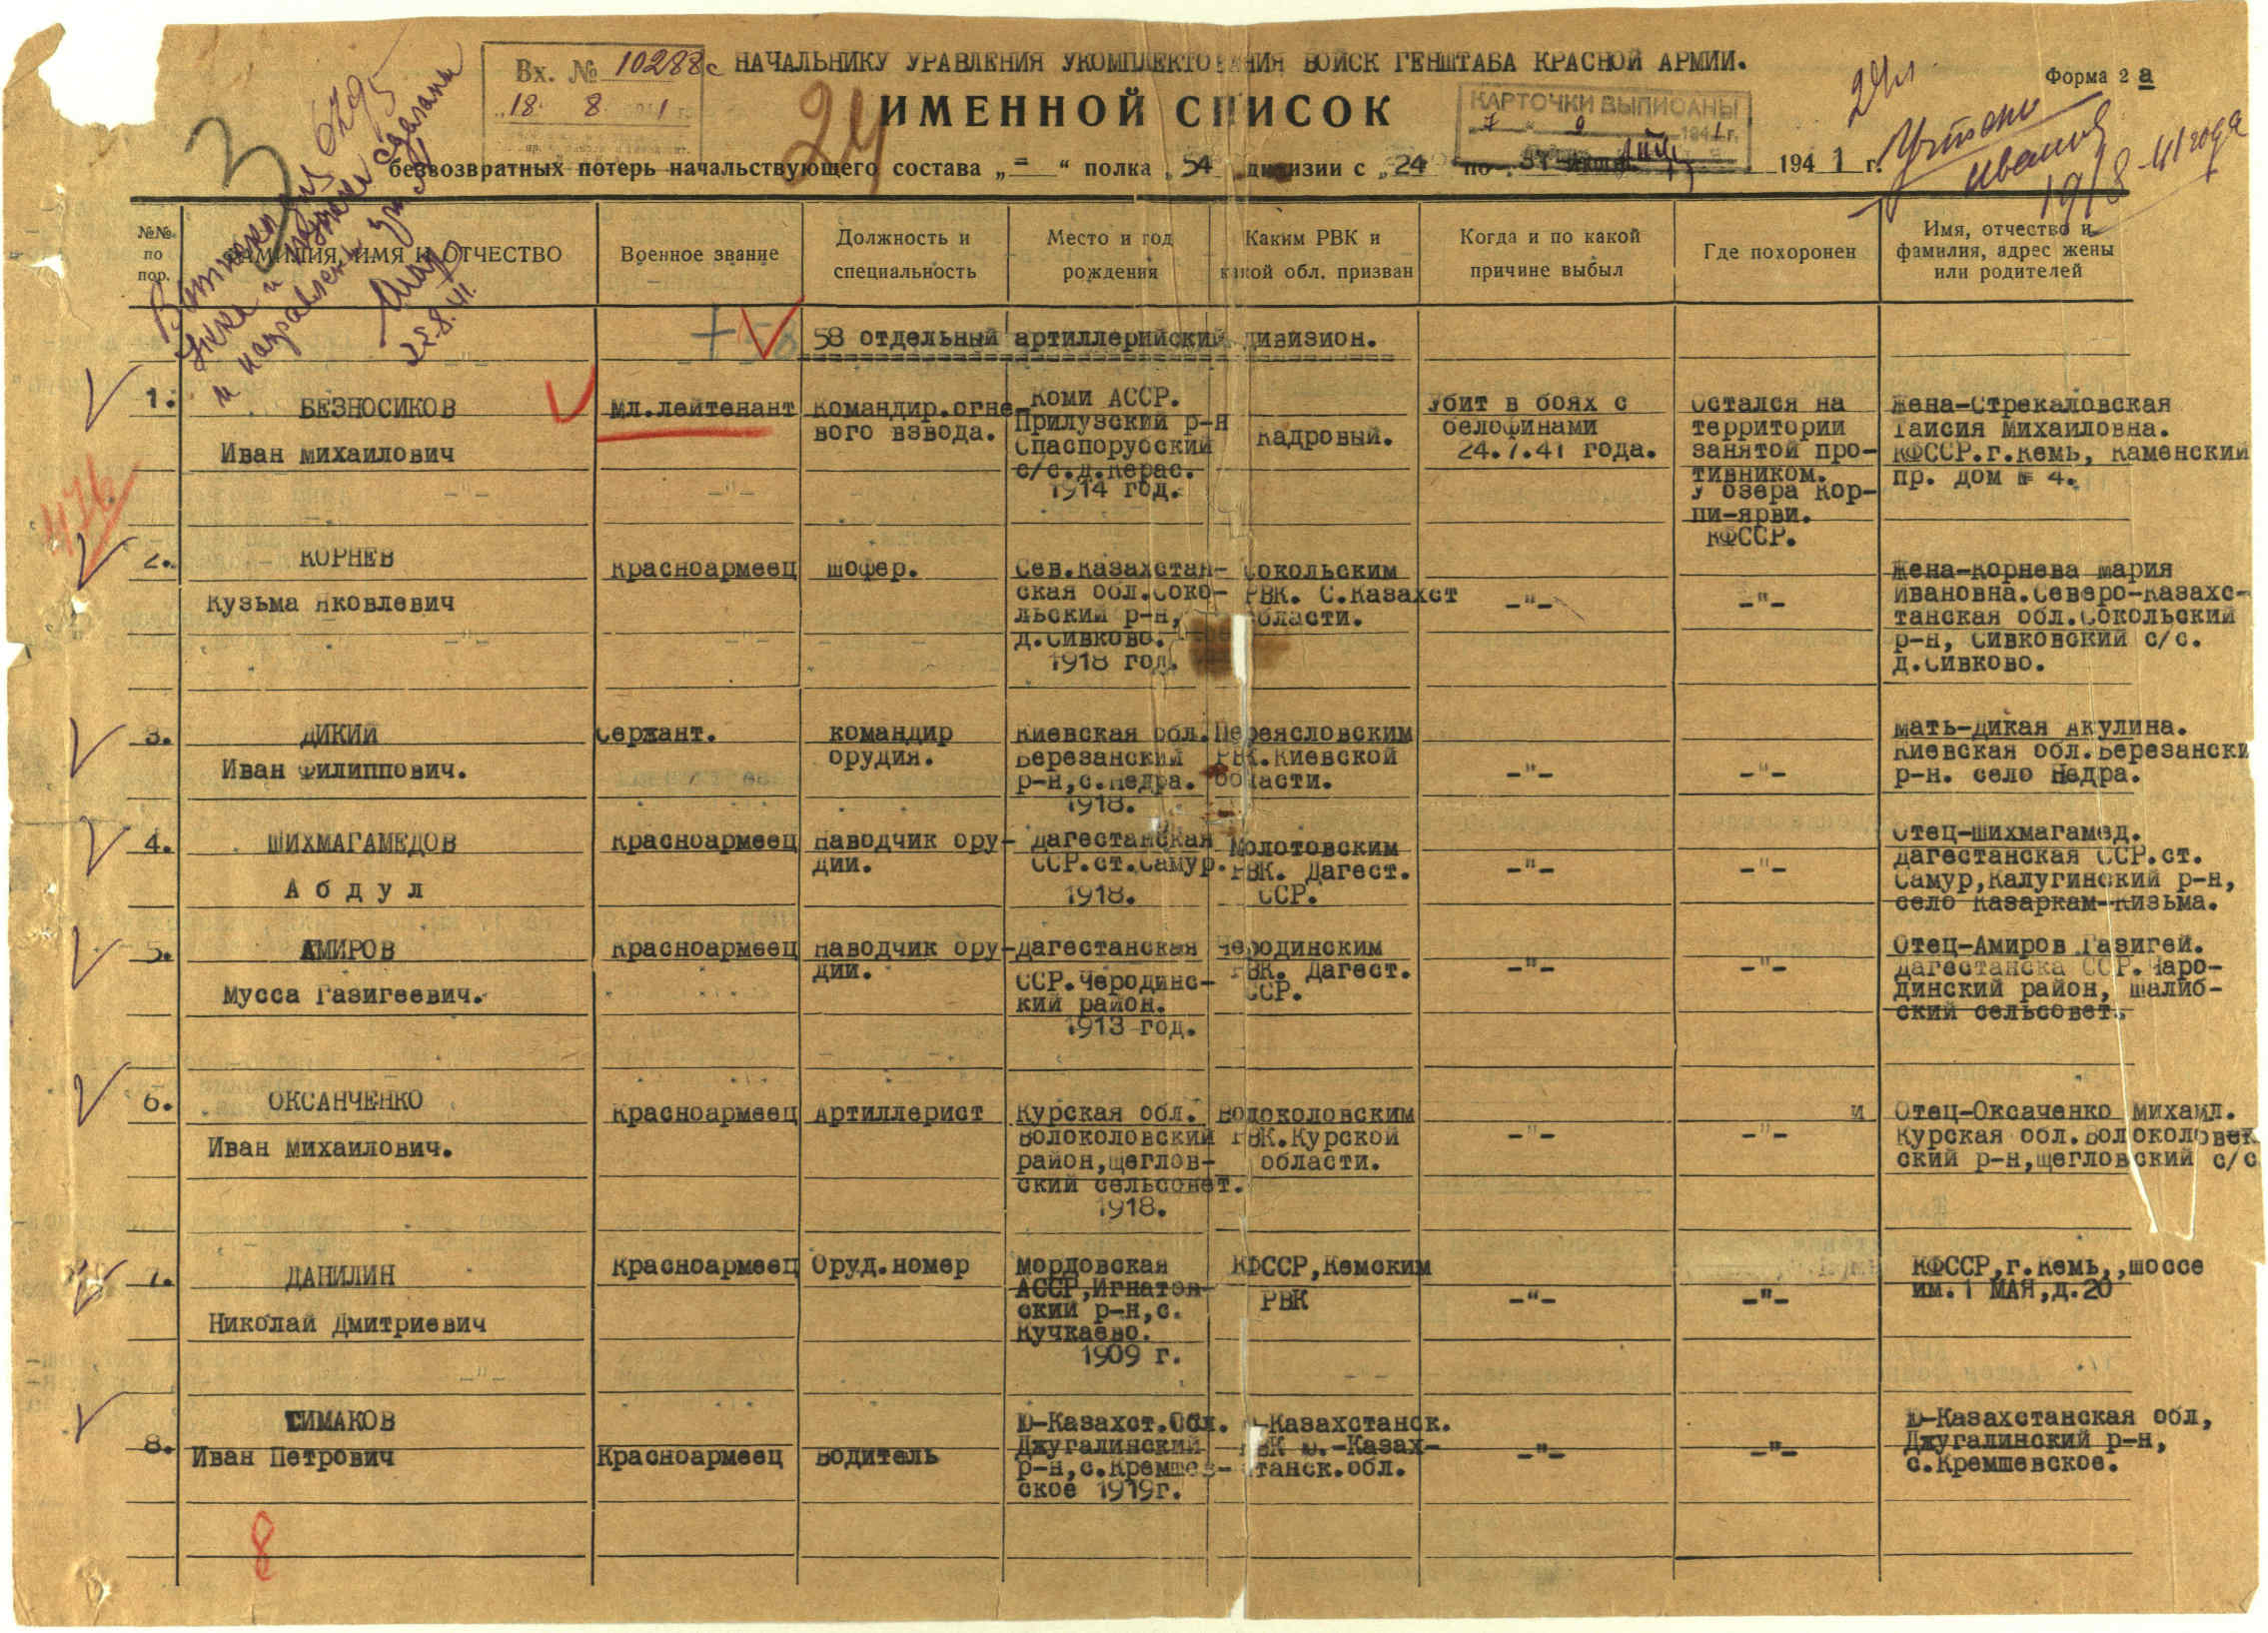 Вх. № 10288с
НАЧАЛЬНИКУ УРАВЛЕНИЯ УКОМПЛЕКТОВАНИЯ ВОЙСК ГЕНШТАБА КРАСНОЙ АРМИИ.
Форма 2 а
18 8 1
24
ИМЕННОЙ СПИСОК
КАРТОЧКИ ВЫПИСАНЫ
1941 г.
безвозвратных потерь начальствующего состава „ = “ полка „ 54 дивизии с „ 24 по 31 1941 г.
19/8-41 года
22.8.41.
№№ по пор.
ФАМИЛИЯ, ИМЯ И ОТЧЕСТВО
Военное звание
Должность и специальность
Место и год рождения
Каким РВК и какой обл. призван
Когда и по какой причине выбыл
Где похоронен
Имя, отчество и фамилия, адрес жены или родителей
58 отдельный артиллерийский дивизион.
1. БЕЗНОСИКОВ
Иван Михайлович
Мл.лейтенант
Командир.огне
вого взвода.
Коми АССР.
Прилузский р-н
Спаспорусский
с/с.д.Керас.
1914 год.
Кадровый.
Убит в боях с
белофинами
24.7.41 года.
Остался на
территории
занятой про-
тивником.
У озера Кор-
пи-ярви.
КФССР.
Жена-Стрекаловская
Таисия Михайловна.
КФССР.г.Кемь, Каменский
пр. дом № 4.
476
2. КОРНЕВ
Кузьма Яковлевич
Красноармеец
шофер.
Сев.Казахстан-
ская обл.Соко-
льский р-н,
д.Сивково.
1918 год.
Сокольским
РВК. С.Казахст
области.
-"-
-"-
Жена-Корнева Мария
Ивановна.Северо-Казахс-
танская обл.Сокольский
р-н, Сивковский с/с.
д.Сивково.
3. ДИКИЙ
Иван Филиппович.
Сержант.
командир
орудия.
Киевская обл.
Березанский
р-н,с.Недра.
1918.
Переясловским
РВК.Киевской
области.
-"-
-"-
Мать-Дикая Акулина.
Киевская обл.Березански
р-н. село Недра.
4. ШИХМАГАМЕДОВ
А б д у л
Красноармеец
Наводчик ору-
дии.
Дагестанская
ССР.ст.Самур.
1918.
Молотовским
РВК. Дагест.
ССР.
-"-
-"-
Отец-Шихмагамед.
Дагестанская ССР.ст.
Самур,Калугинский р-н,
село Казаркам-Кизьма.
5. АМИРОВ
Мусса Газигеевич.
Красноармеец
Наводчик ору-
дии.
Дагестанская
ССР.Черодинс-
кий район.
1913 год.
Черодинским
РВК. Дагест.
ССР.
-"-
-"-
Отец-Амиров Газигей.
Дагестанска ССР.Чаро-
динский район, Шалиб-
ский сельсовет.
6. ОКСАНЧЕНКО
Иван Михайлович.
Красноармеец
Артиллерист
Курская обл.
Волоколовский
район,щеглов-
ский сельсовет.
1918.
Волоколовским
РВК.Курской
области.
-"-
-"-
и
Отец-Оксаченко Михаил.
Курская обл.Волоколовск
ский р-н,щегловский с/с
7. ДАНИЛИН
Николай Дмитриевич
Красноармеец
Оруд.номер
Мордовская
АССР,Игнатов-
ский р-н,с.
Кучкаево.
1909 г.
КФССР,Кемским
РВК
-"-
-"-
КФССР,г.Кемь,,шоссе
им.1 МАЯ,д.20
8. СИМАКОВ
Иван Петрович
Красноармеец
Водитель
Ю-Казахст.Обл.
Джугалинский
р-н,с.Кремшев-
ское 1919г.
-Казахстанск.
РВК Ю.-Казах-
танск.обл.
-"-
-"-
Ю-Казахстанская обл,
Джугалинский р-н,
с.Кремшевское.
8